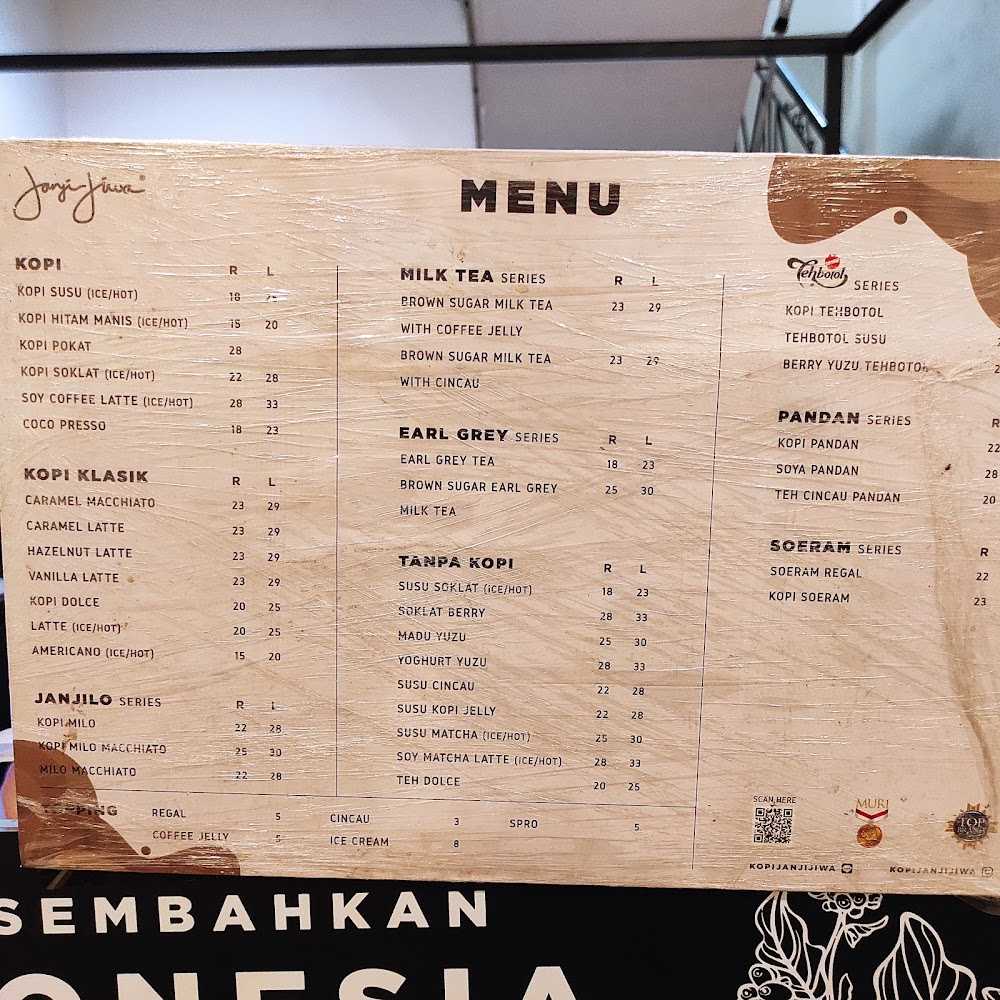 Janji Jiwa
MENU
KOPI R L
KOPI SUSU (ICE/HOT) 18
KOPI HITAM MANIS (ICE/HOT) 15 20
KOPI POKAT 28
KOPI SOKLAT (ICE/HOT) 22 28
SOY COFFEE LATTE (ICE/HOT) 28 33
COCO PRESSO 18 23
KOPI KLASIK R L
CARAMEL MACCHIATO 23 29
CARAMEL LATTE 23 29
HAZELNUT LATTE 23 29
VANILLA LATTE 23 29
KOPI DOLCE 20 25
LATTE (ICE/HOT) 20 25
AMERICANO (ICE/HOT) 15 20
JANJILO SERIES R L
KOPI MILO 22 28
KOPI MILO MACCHIATO 25 30
MILO MACCHIATO 22 28
MILK TEA SERIES R L
BROWN SUGAR MILK TEA 23 29
WITH COFFEE JELLY
BROWN SUGAR MILK TEA 23 29
WITH CINCAU
EARL GREY SERIES R L
EARL GREY TEA 18 23
BROWN SUGAR EARL GREY 25 30
MILK TEA
TANPA KOPI R L
SUSU SOKLAT (ICE/HOT) 18 23
SOKLAT BERRY 28 33
MADU YUZU 25 30
YOGHURT YUZU 28 33
SUSU CINCAU 22 28
SUSU KOPI JELLY 22 28
SUSU MATCHA (ICE/HOT) 25 30
SOY MATCHA LATTE (ICE/HOT) 28 33
TEH DOLCE 20 25
Tehbotol SERIES
KOPI TEHBOTOL
TEHBOTOL SUSU
BERRY YUZU TEHBOTOL
PANDAN SERIES R
KOPI PANDAN 22
SOYA PANDAN 28
TEH CINCAU PANDAN 20
SOERAM SERIES R
SOERAM REGAL 22
KOPI SOERAM 23
TOPPING REGAL 5 CINCAU 3 SPRO 5
COFFEE JELLY 5 ICE CREAM 8
SCAN HERE
MURI
TOP
KOPIJANJIJIWA
KOPIJANJIJIWA
SEMBAHKAN
ONESIA